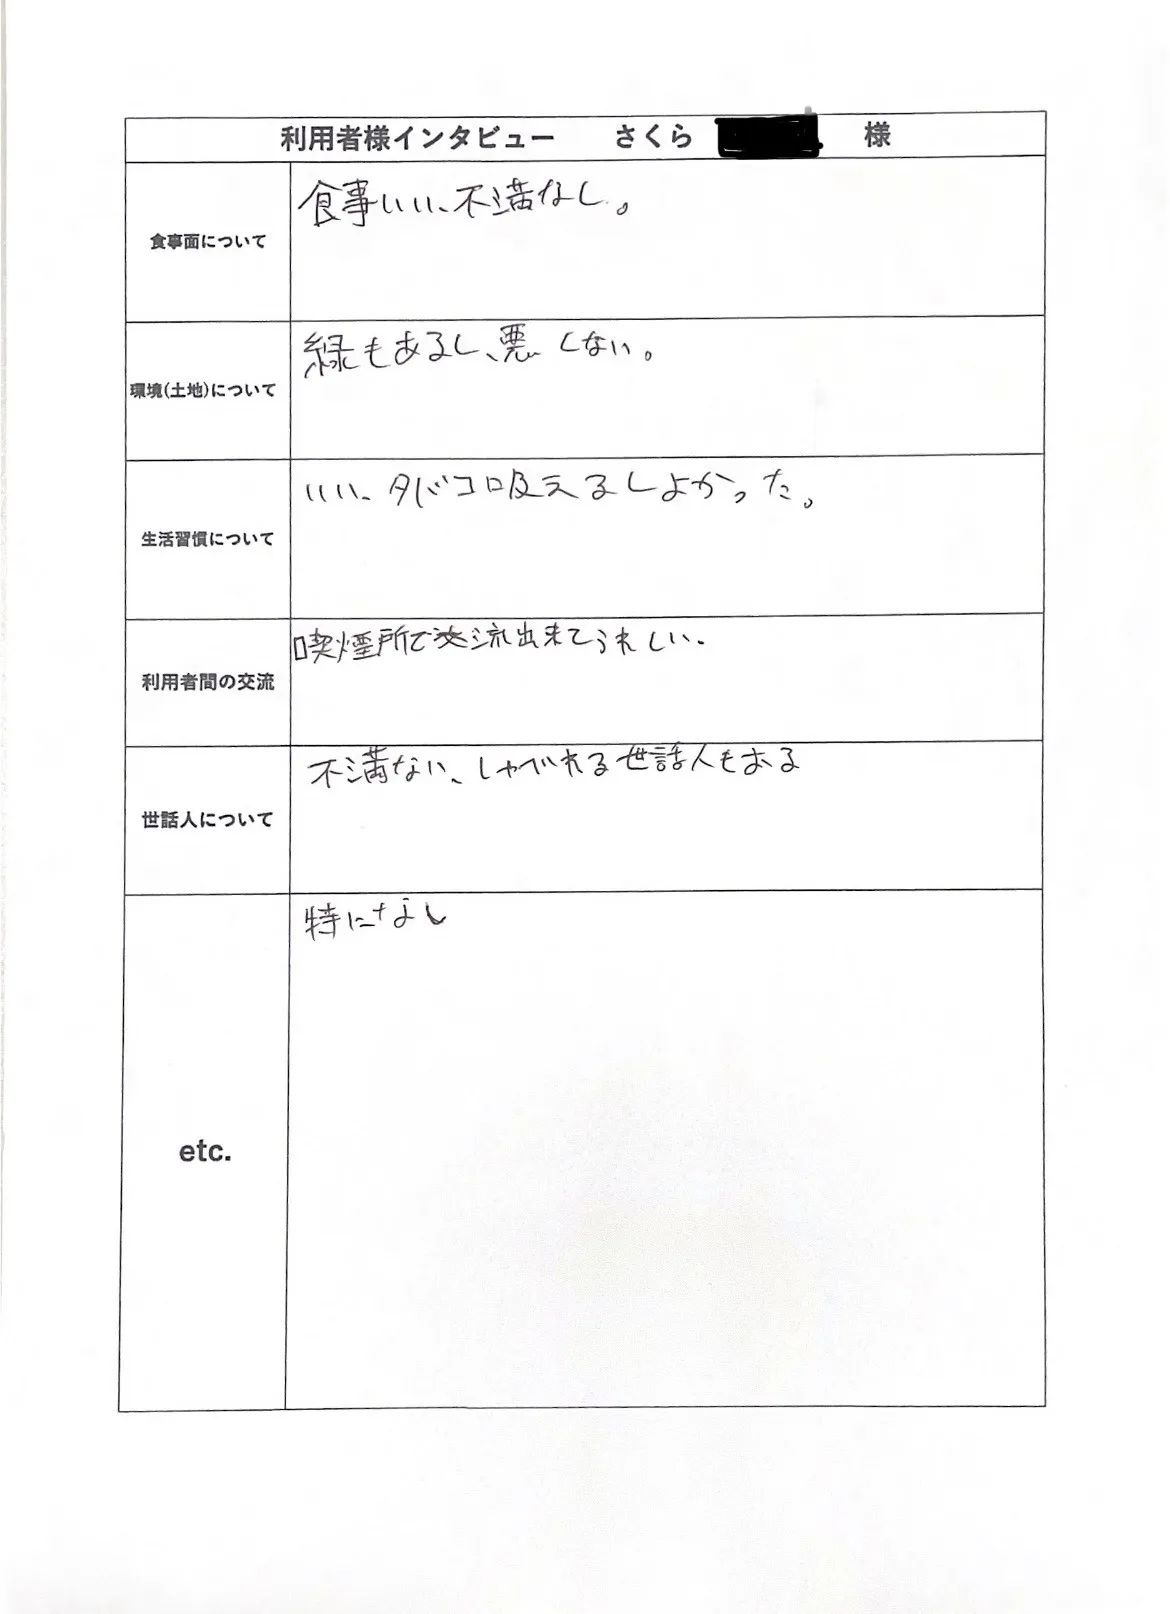 利用者様インタビュー さくら 様
食事面について
食事いい、不満なし。
環境(土地)について
緑もあるし、悪くない。
生活習慣について
いい、タバコ吸えるしよかった。
利用者間の交流
喫煙所で交流出来てうれしい。
世話人について
不満ない、しゃべれる世話人もおる
etc.
特になし